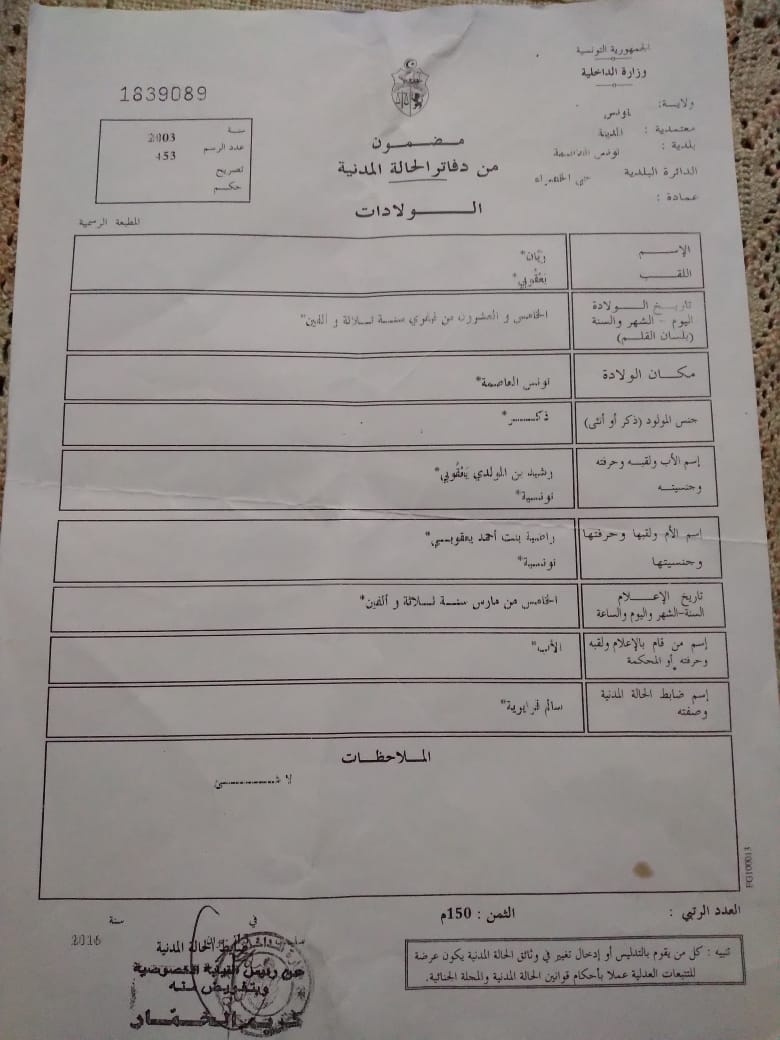 الجمهورية التونسية
وزارة الداخلية
ولاية: تونس
معتمدية : المدينة
بلدية : تونس العاصمة
الدائرة البلدية حي الخضراء
عمادة :
1839089
سنة 2003
عدد الرسم 453
تصريح
حكم
المطبعة الرسمية
مضمون
من دفاتر الحالة المدنية
الـولادات
الإسـم ريّان*
اللقب يَعْقُوبي*
تاريخ الـولادة
اليوم - الشهر والسنة
(بلسان القلم)
الخامس و العشرون من فيفري سنة ثلاثة و ألفين*
مكان الولادة تونس العاصمة*
جنس المولود (ذكر أو أنثى) ذكـر*
إسم الأب ولقبه وحرفته رشيد بن المولدي يَعْقُوبي*
وجنسيته تونسية*
إسم الأم ولقبها وحرفتها راضية بنت أحمد يعقوبـي*
وجنسيتها تونسية*
تاريخ الإعـلام
السنة-الشهر واليوم والساعة
الخامس من مارس سنة ثلاثة و ألفين*
إسم من قام بالإعلام ولقبه
وحرفته أو المحكمة
الأب*
إسم ضابط الحالة المدنية
وصفته
سالم
الملاحظات
لا شـئ
FG100013
العدد الرتبي :
الثمن : 150م
في سنة
2016
تنبيه : كل من يقوم بالتدليس أو إدخال تغيير في وثائق الحالة المدنية يكون عرضة
للتتبعات العدلية عملا بأحكام قوانين الحالة المدنية والمجلة الجنائية.
ضابط الحالة المدنية
عن رئيس النيابة الخصوصية
وبتفويض منه
كريم الخمّار